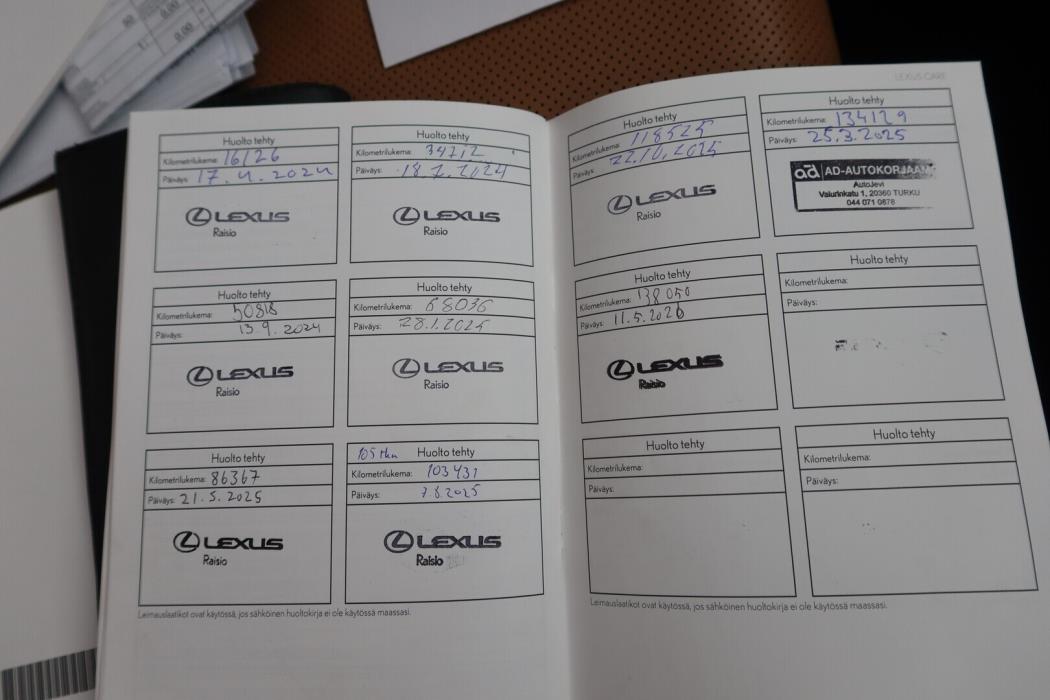 LEXUS CARE
Huolto tehty
Kilometrilukema: 16126
Päiväys: 17.4.2024
LEXUS
Raisio
Huolto tehty
Kilometrilukema: 34212
Päiväys: 18.7.2024
LEXUS
Raisio
Huolto tehty
Kilometrilukema: 50818
Päiväys: 13.9.2024
LEXUS
Raisio
Huolto tehty
Kilometrilukema: 68036
Päiväys: 28.1.2025
LEXUS
Raisio
Huolto tehty
Kilometrilukema: 86367
Päiväys: 21.5.2025
LEXUS
Raisio
105 tkm Huolto tehty
Kilometrilukema: 103431
Päiväys: 7.8.2025
LEXUS
Raisio
Leimauslaatikot ovat käytössä, jos sähköinen huoltokirja ei ole käytössä maassasi.
Huolto tehty
Kilometrilukema: 118525
Päiväys: 22.10.2025
LEXUS
Raisio
Huolto tehty
Kilometrilukema: 134129
Päiväys: 25.3.2025
ad AD-AUTOKORJAAMO
AutoJevi
Valurinkatu 1, 20360 TURKU
044 071 0878
Huolto tehty
Kilometrilukema: 138050
Päiväys: 11.5.2026
LEXUS
Raisio
Huolto tehty
Kilometrilukema:
Päiväys:
Huolto tehty
Kilometrilukema:
Päiväys:
Huolto tehty
Kilometrilukema:
Päiväys:
Leimauslaatikot ovat käytössä, jos sähköinen huoltokirja ei ole käytössä maassasi.